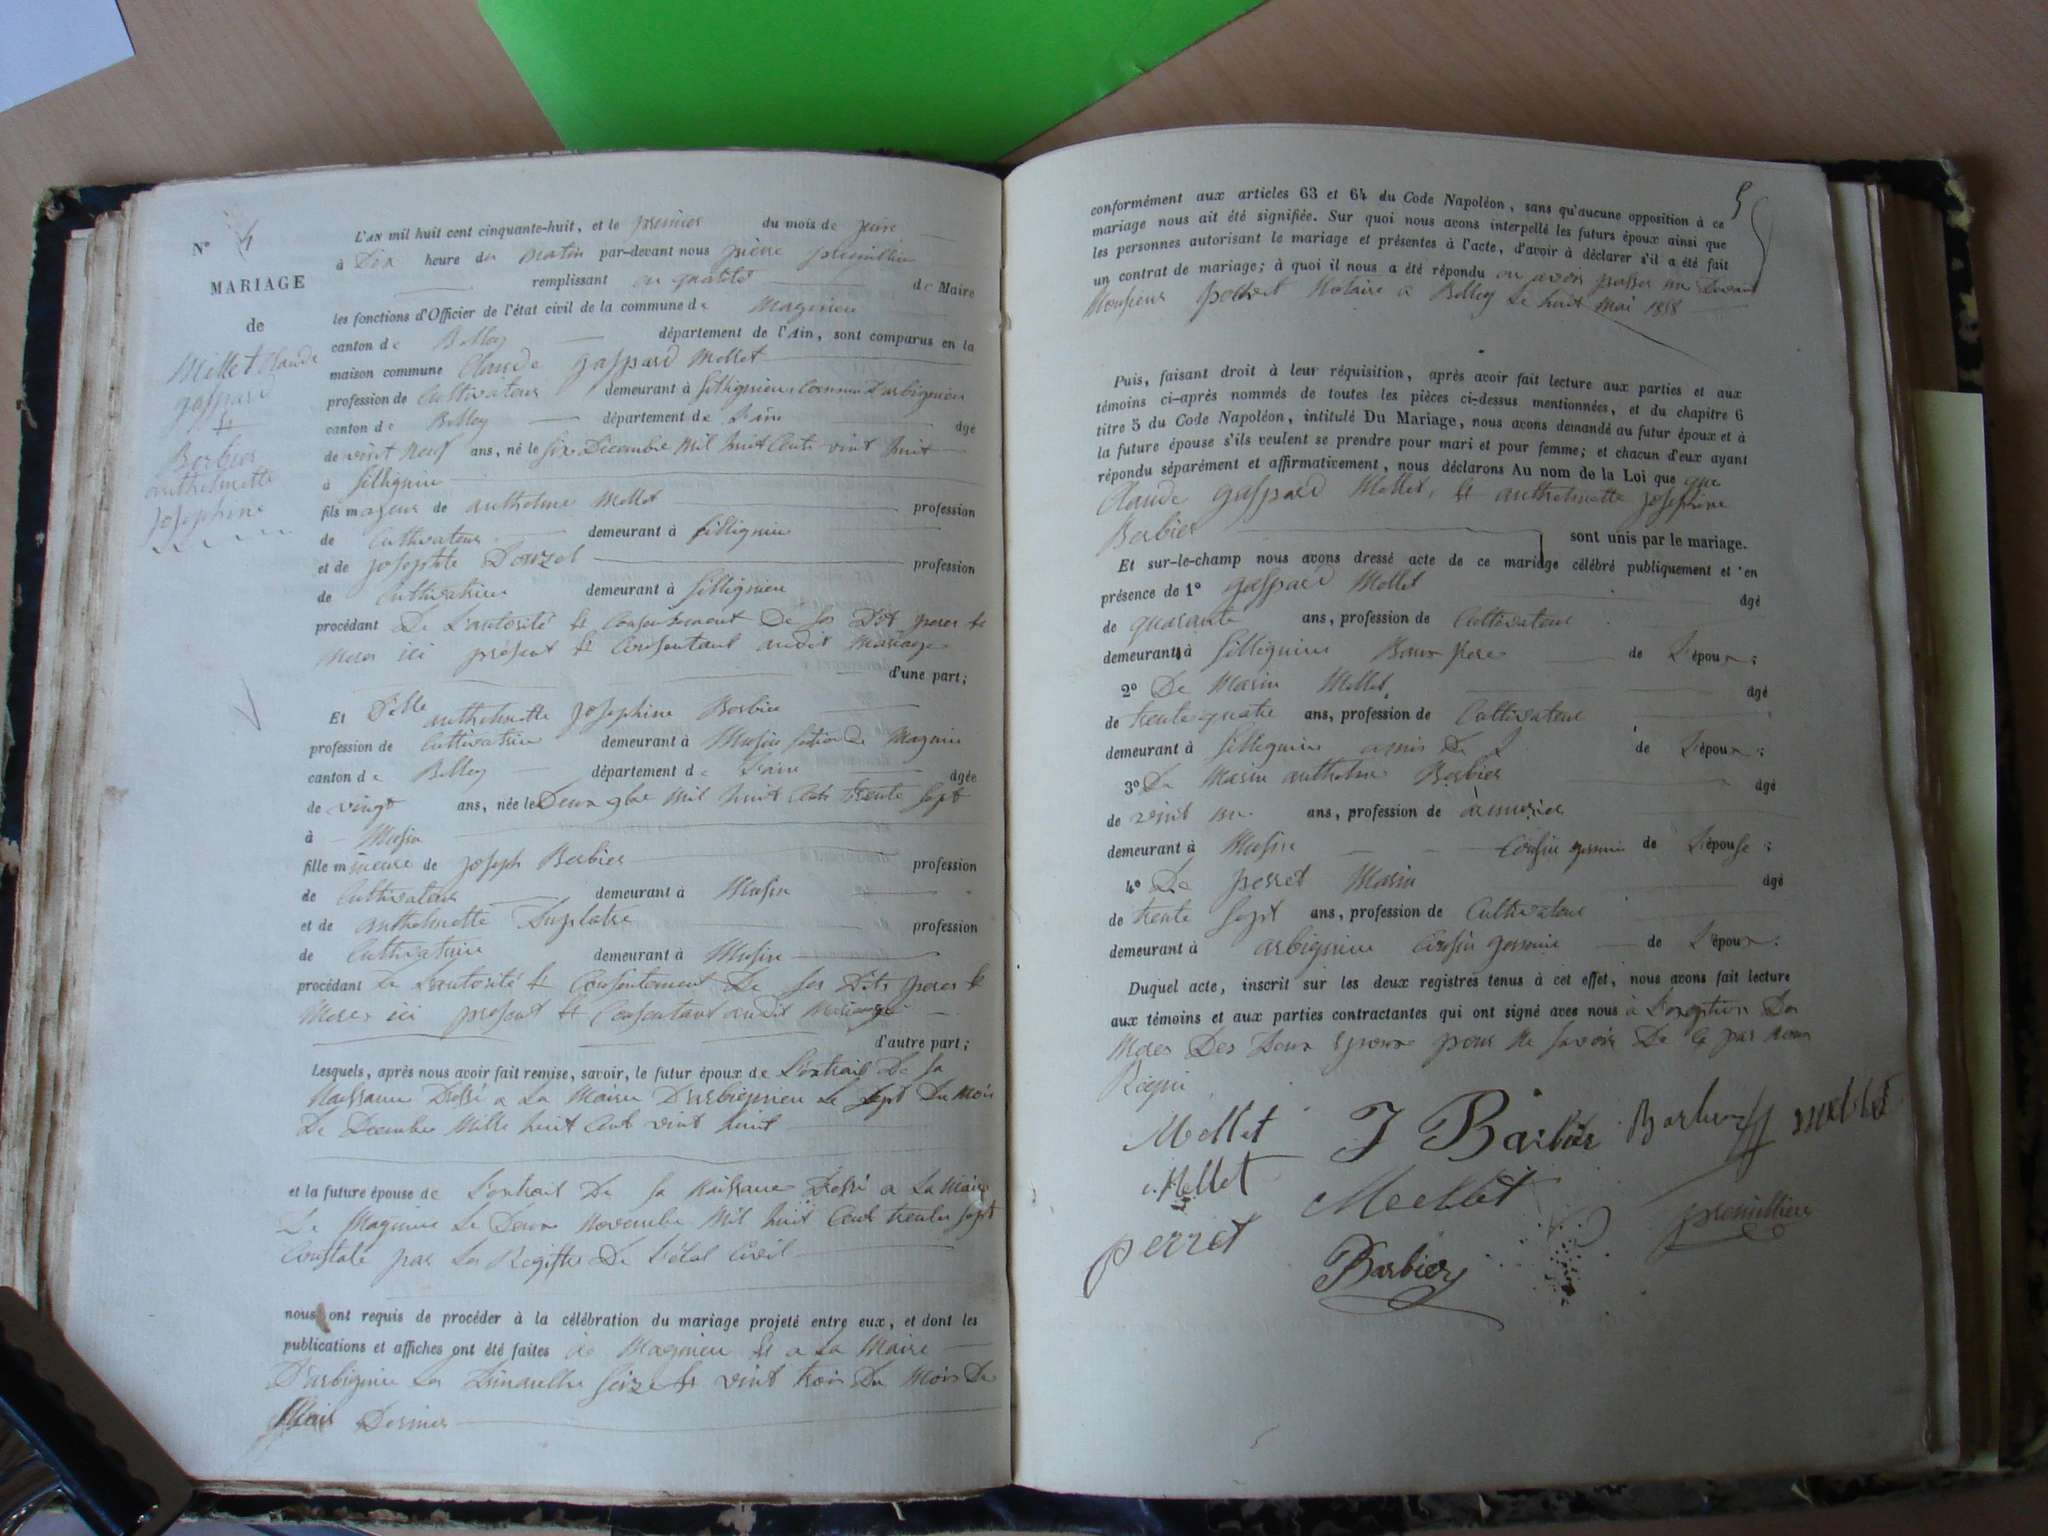 N° 4
MARIAGE
de
Mellet Claude
gaspard
et
Berbier
anthelmette
Josephine
L'AN mil huit cent cinquante-huit, et le premier du mois de juin
à Dix heure du matin par-devant nous pierre premillieu
remplissant en qualité de Maire
les fonctions d'Officier de l'état civil de la commune de Magnieu
canton de Belley département de l'Ain, sont comparus en la
maison commune Claude gaspard Mellet
profession de Cultivateur demeurant à Sillignieu Commune d'arbignieu
canton de Belley département de L'ain âgé
de vint neuf ans, né le six Décembre mil huit Cents vint huit
à Sillignieu
fils majeur de anthelme Mellet profession
de Cultivateur demeurant à Sillignieu
et de Josephte Douzel profession
de Cultivatrice demeurant à Sillignieu
procédant De L'autorité et Consentement De ses Dit peres et
Meres ici présent et Consentant audit Mariage
d'une part;
Et D'elle anthelmette Josephine Berbier
profession de Cultivatrice demeurant à Musin section de Magnieu
canton de Belley département de L'ain âgée
de vingt ans, née le Deux 9bre mil huit Cents trente sept
à Musin
fille mineure de Joseph Berbier profession
de Cultivateur demeurant à Musin
et de anthelmette Duplatre profession
de Cultivatrice demeurant à Musin
procédant De L'autorité et Consentement De ses Dits peres et
Meres ici présent et Consentant audit Mariage
d'autre part;
Lesquels, après nous avoir fait remise, savoir, le futur époux de L'extrait De sa
Naissance Dressé a La Mairie D'arbignieu Le Sept Du Mois
De Decembre Mille huit Cent vint huit
et la future épouse de L'extrait De sa Naissance Dressé a La Mairie
De Magnieu Le Deux Novembre Mil huit Cent trente sept
Constaté par Les Registre De L'état Civil
nous ont requis de procéder à la célébration du mariage projeté entre eux, et dont les
publications et affiches ont été faites à Magnieu et a La Maire
D'arbignieu Les Dimanche Seize et vint trois Du Mois De
Mai Dernier
5
conformément aux articles 63 et 64 du Code Napoléon, sans qu'aucune opposition à ce
mariage nous ait été signifiée. Sur quoi nous avons interpellé les futurs époux ainsi que
les personnes autorisant le mariage et présentes à l'acte, d'avoir à déclarer s'il a été fait
un contrat de mariage; à quoi il nous a été répondu en avoir passer un Devant
Monsieur Notaire a Belley Le huit Mai 1858
Puis, faisant droit à leur réquisition, après avoir fait lecture aux parties et aux
témoins ci-après nommés de toutes les pièces ci-dessus mentionnées, et du chapitre 6
titre 5 du Code Napoléon, intitulé Du Mariage, nous avons demandé au futur époux et à
la future épouse s'ils veulent se prendre pour mari et pour femme; et chacun d'eux ayant
répondu séparément et affirmativement, nous déclarons Au nom de la Loi que que
Claude gaspard Mellet, et anthelmette Josephine
Berbier sont unis par le mariage.
Et sur-le-champ nous avons dressé acte de ce mariage célébré publiquement et en
présence de 1° gaspard Mellet âgé
de quarante ans, profession de Cultivateur
demeurant à Sillignieu Beaux frere de L'époux;
2° De Marin Mellet âgé
de trente quatre ans, profession de Cultivateur
demeurant à Sillignieu amis De L de L'époux;
3° De Marin anthelme Berbier âgé
de vint un ans, profession de armurier
demeurant à Musin Cousin germain de L'épouse;
4° De perret Marin âgé
de trente Sept ans, profession de Cultivateur
demeurant à arbignieu Cousin germain de L'époux.
Duquel acte, inscrit sur les deux registres tenus à cet effet, nous avons fait lecture
aux témoins et aux parties contractantes qui ont signé avec nous à L'exeption Des
Meres Des Deux Epoux pour Ne Savoir De Ce par nous
Requi
Mellet J Barbier Barbier mellet
Mellet Meellet premillieu
perret Barbier